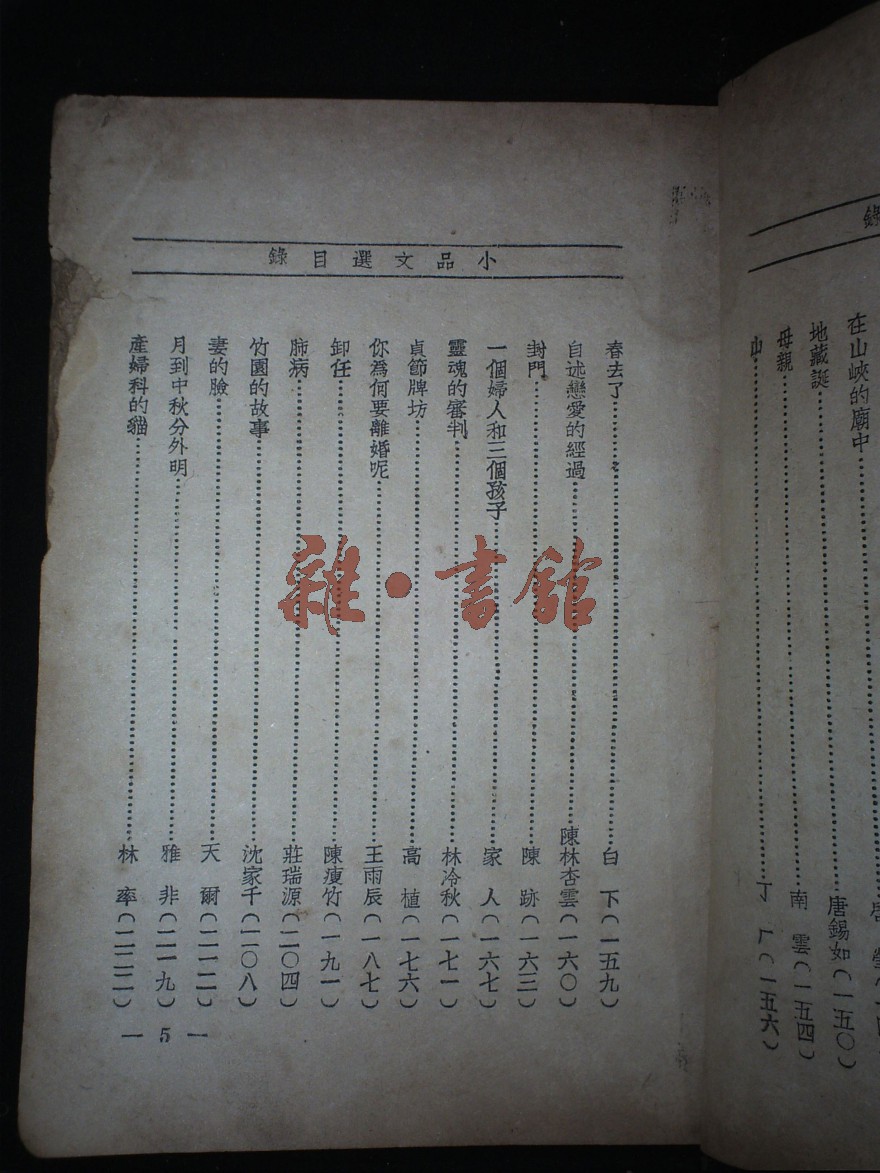 錄
在山峽的廟中
地藏誕……唐錫如（一五〇）
母親……南雲（一五四）
山……丁厂（一五六）
小品文選目錄
春去了……白下（一五九）
自述戀愛的經過……陳林杏雲（一六〇）
封門……陳跡（一六三）
一個婦人和三個孩子……家人（一六七）
靈魂的審判……林冷秋（一七一）
貞節牌坊……高植（一七六）
你為何要離婚呢……王雨辰（一八七）
卸任……陳瘦竹（一九一）
肺病……莊瑞源（二〇四）
竹園的故事……沈家千（二〇八）
妻的臉……天爾（二一二）
月到中秋分外明……雅非（二一九）
產婦科的貓……林率（二二二）
— 5 —
雜·書館